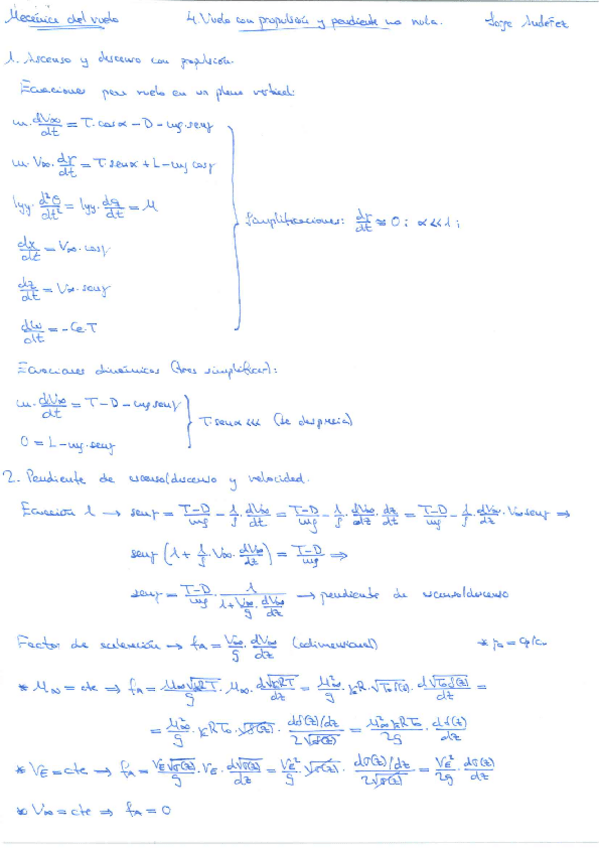 Mecánica del vuelo 4. Vuelo con propulsión y pendiente no nula. Jorge
1. Ascenso y descenso con propulsión.
Ecuaciones para vuelo en un plano vertical:
m·dV∞/dt = T·cosα − D − mg·senγ
m·V∞·dγ/dt = T·senα + L − mg cosγ
Iyy·d²θ/dt² = Iyy·dq/dt = M
Simplificaciones: dγ/dt ≈ 0; α<<1;
dx/dt = V∞·cosγ
dz/dt = V∞·senγ
dW/dt = −Ce·T
Ecuaciones dinámicas (tras simplificar):
m·dV∞/dt = T − D − mg senγ
T·senα <<< (se desprecia)
0 = L − mg·senγ
2. Pendiente de ascenso/descenso y velocidad.
Ecuación 1 → senγ = T−D/mg − 1/g·dV∞/dt = T−D/mg − 1/g·dV∞/dz·dz/dt = T−D/mg − 1/g·dV∞/dz·V∞senγ ⇒
senγ (1 + 1/g·V∞·dV∞/dz) = T−D/mg ⇒
senγ = T−D/mg · 1/(1 + V∞/g·dV∞/dz) → pendiente de ascenso/descenso
Factor de → fA = V∞/g·dV∞/dz (adimensional) * = cp/cv
* M∞ = cte ⇒ fA = M∞√γRT/g · M∞·d√γRT/dz = M∞²/g·γR·√T₀δ(z)·d√T₀δ(z)/dz =
= M∞²/g·γRT₀·√δ(z)·dδ(z)/dz/2√δ(z) = M∞²γRT₀/2g·dδ(z)/dz
* VE = cte ⇒ fA = VE√σ(z)/g·VE·d√σ(z)/dz = VE²/g·√σ(z)·dσ(z)/dz/2√σ(z) = VE²/2g·dσ(z)/dz
* V∞ = cte ⇒ fA = 0